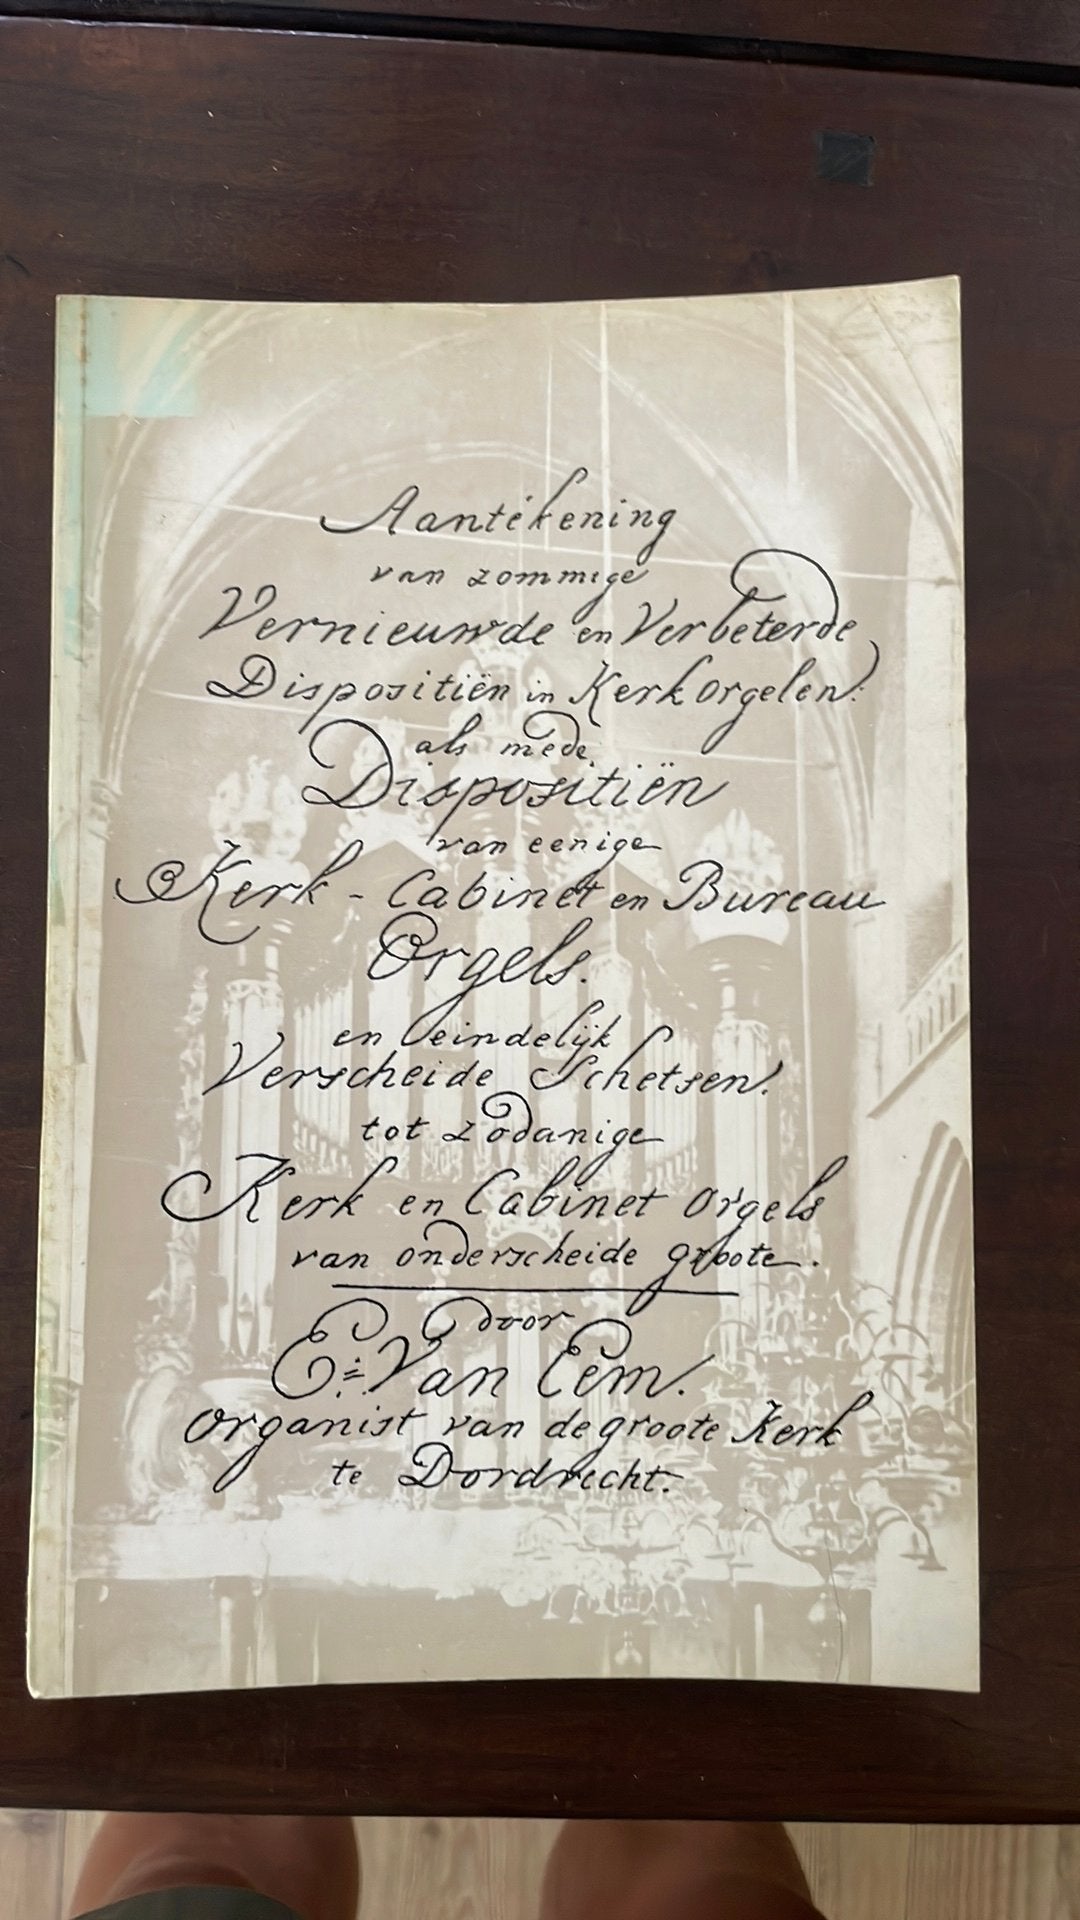 Aantékening
van zommige
Vernieuwde en Verbeterde
Dispositiën in Kerk orgelen.
als mede
Dispositiën
van eenige
Kerk - Cabinet en Bureau
Orgels.
en eindelijk
Verscheide Schetsen.
tot zodanige
Kerk en Cabinet orgels
van onderscheide groote.
door
E: Van Eem.
organist van de groote Kerk
te Dordrecht.